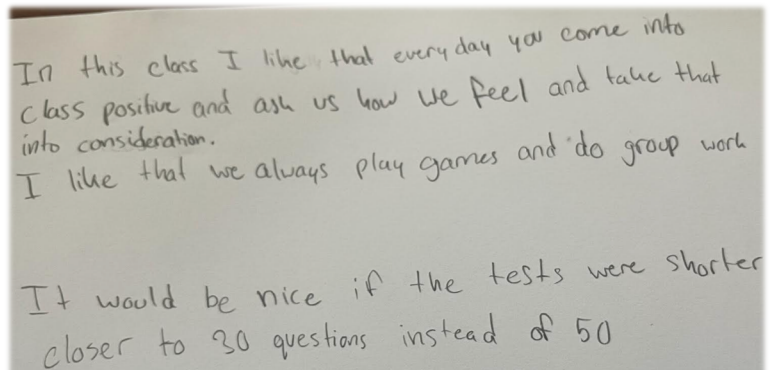 In this class I like that everyday you come into
class positive and ask us how we feel and take that
into consideration.
I like that we always play games and do group work
It would be nice if the tests were shorter
closer to 30 questions instead of 50